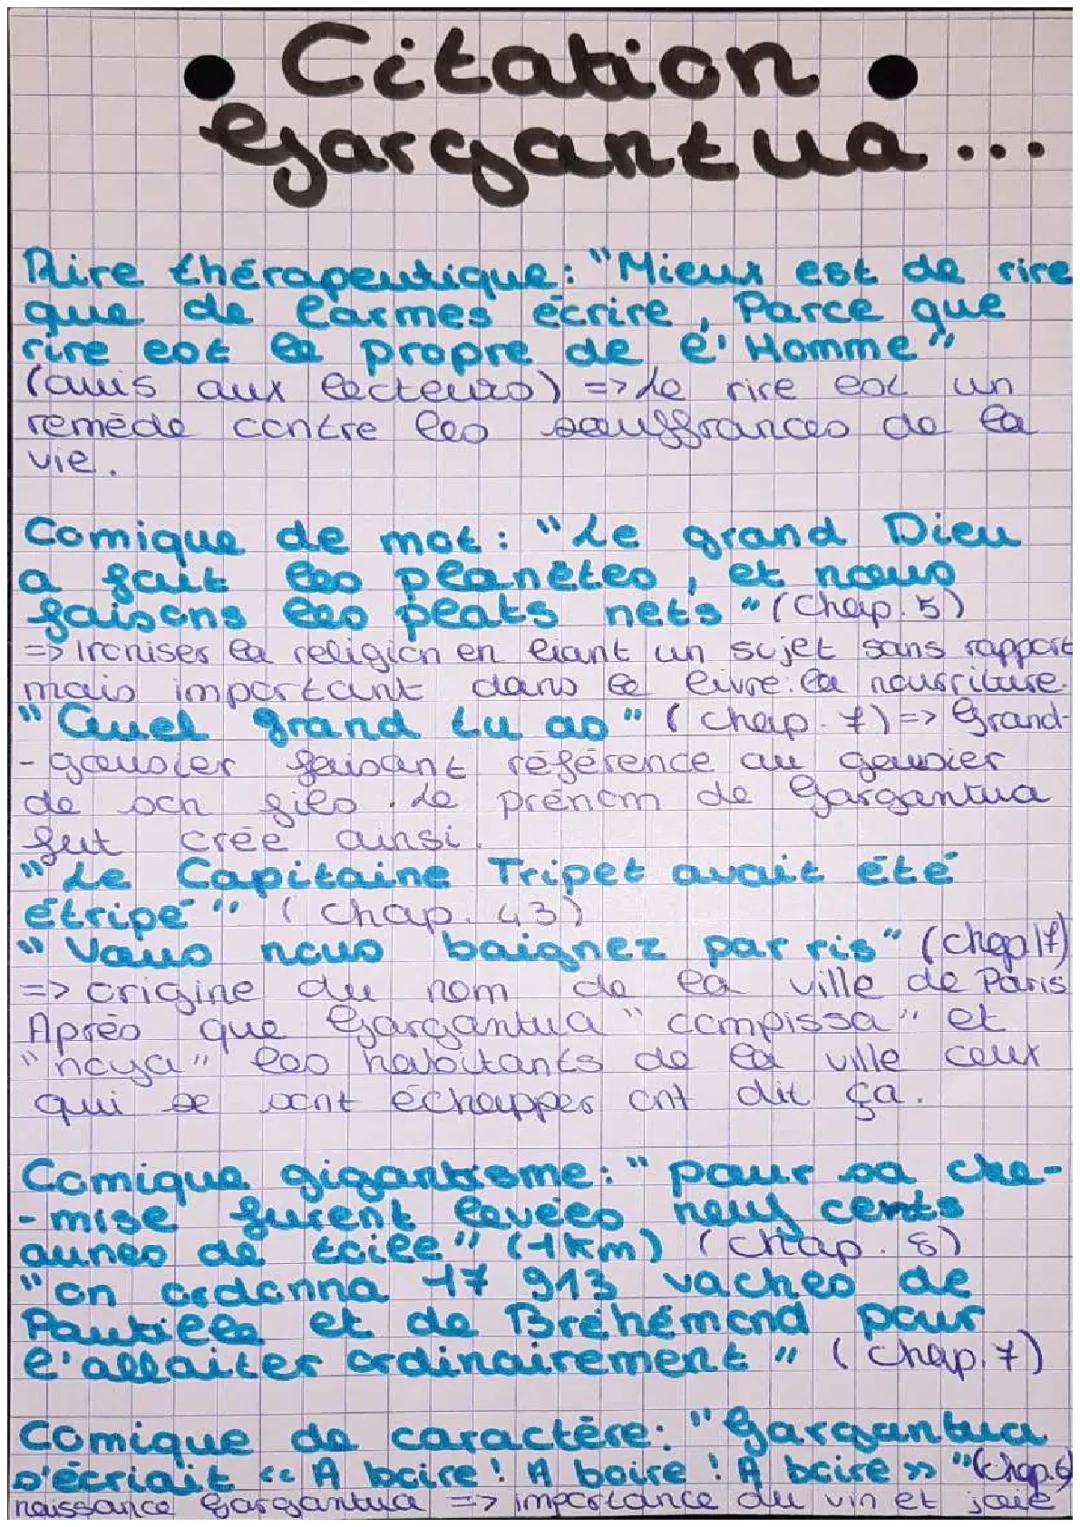 • Citation •
Gargantua...
Rire thérapeutique: "Mieux est de rire
que de larmes écrire, Parce que
rire est le propre de l'Homme"
(avis aux lecteurs) => Le rire est un
remède contre les souffrances de la
vie.
Comique de mot: "Le grand Dieu
a fait les planètes, et nous
faisons les plats nets" (Chap. 5)
=> Ironiser la religion en liant un sujet sans rapport
mais important dans le livre: la nourriture.
"Quel grand tu as" (chap. 7) => Grand-
-gousier faisant référence au gousier
de son fils. Le prénom de Gargantua
fut crée ainsi.
"Le Capitaine Tripet avait été
étripé" (chap. 43)
"Vous nous baignez par ris" (chap 17)
=> origine du nom de la ville de Paris
Après que Gargantua "compissa" et
"noya" les habitants de la ville ceux
qui se sont échapper ont dit ça.
Comique gigantisme: "pour sa che-
-mise furent levées neuf cents
aunes de toile" (1km) (chap. 8)
"on ordonna 17 913 vaches de
Pautille et de Bréhémond pour
l'allaiter ordinairement" (chap. 7)
Comique de caractère: "Gargantua
s'écriait << A boire! A boire! A boire >>" (chap. 6)
naissance Gargantua => importance du vin et joie